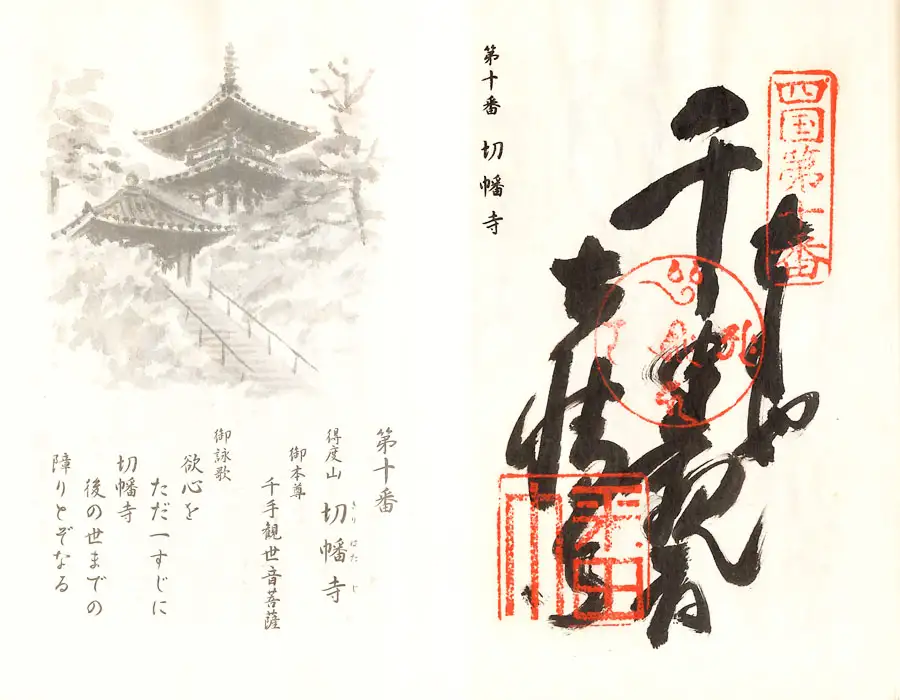 四国第十番
千手観音
第十番 切幡寺
第十番
得度山 切幡寺
きり はた じ
御本尊
千手観世音菩薩
御詠歌
欲心を
ただ一すじに
切幡寺
後の世までの
障りとぞなる